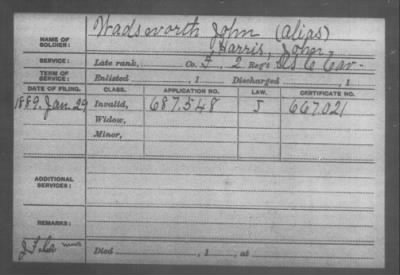 NAME OF SOLDIER: Wadsworth John (alias)
Harris, John
SERVICE: Late rank, Co. F, 2 Reg't U S C Cav.
TERM OF SERVICE: Enlisted , 1 Discharged , 1
DATE OF FILING. CLASS. APPLICATION NO. LAW. CERTIFICATE NO.
1889. Jan. 29 Invalid, 687.548 J 667.021
Widow,
Minor,
ADDITIONAL SERVICES:
REMARKS:
Died , 1 , at